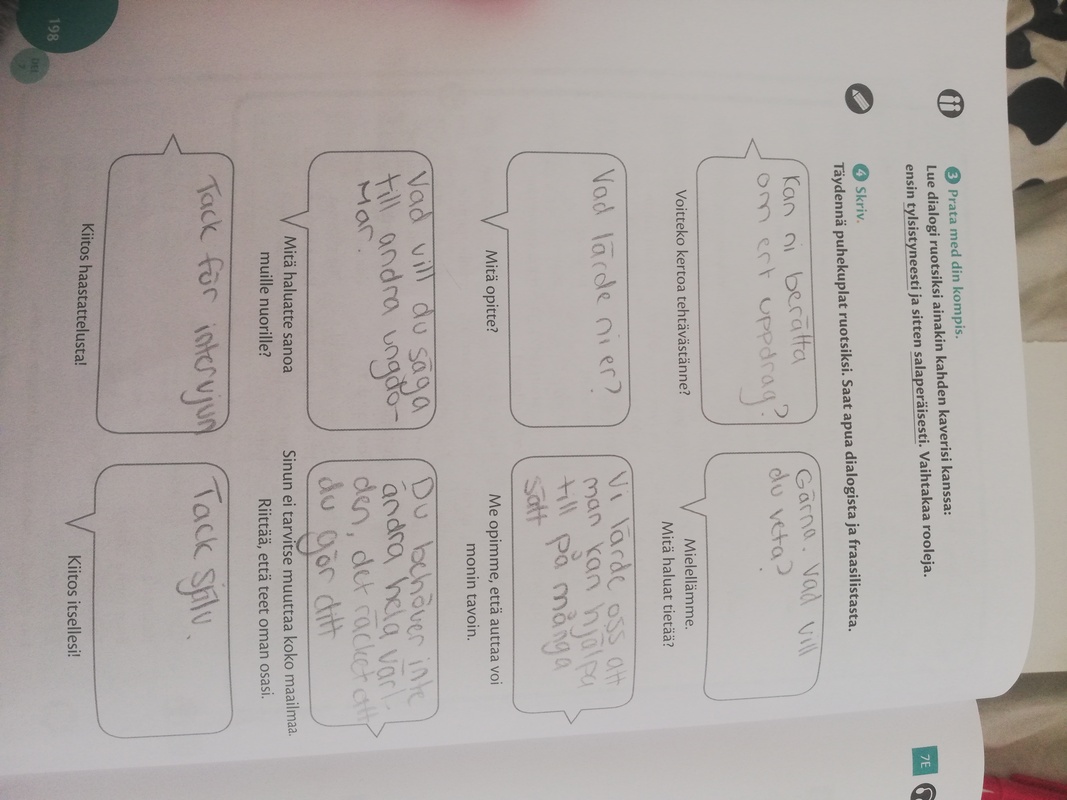 3 Prata med din kompis.
Lue dialogi ruotsiksi ainakin kahden kaverisi kanssa:
ensin tylsistyneesti ja sitten salaperäisesti. Vaihtakaa rooleja.
4 Skriv.
Täydennä puhekuplat ruotsiksi. Saat apua dialogista ja fraasilistasta.
Kan ni berätta
om ert uppdrag?
Voitteko kertoa tehtävästänne?
Gärna. Vad vill
du veta?
Mielellämme.
Mitä haluat tietää?
Vad lärde ni er?
Mitä opitte?
Vi lärde oss att
man kan hjälpa
till på många
sätt
Me opimme, että auttaa voi
monin tavoin.
Vad vill du säga
till andra ungdo-
mar.
Mitä haluatte sanoa
muille nuorille?
Du behöver inte
ändra hela värl-
den, det räcker att
du gör ditt
Sinun ei tarvitse muuttaa koko maailmaa.
Riittää, että teet oman osasi.
Tack för intervjun
Kiitos haastattelusta!
Tack själv.
Kiitos itsellesi!
198
7E